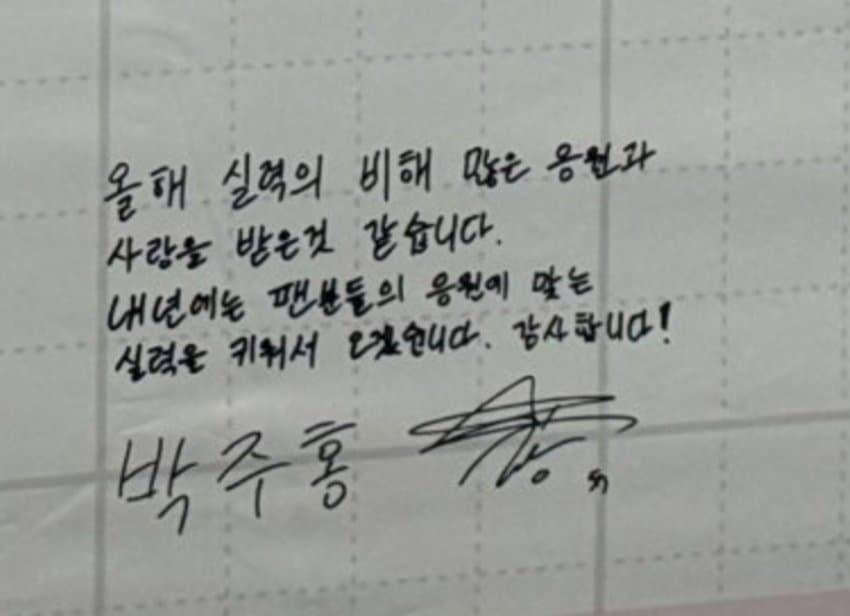 올해 실력의 비해 많은 응원과
사랑을 받은것 같습니다.
내년에는 팬분들의 응원에 맞는
실력을 키워서 오겠습니다. 감사합니다!
박주홍